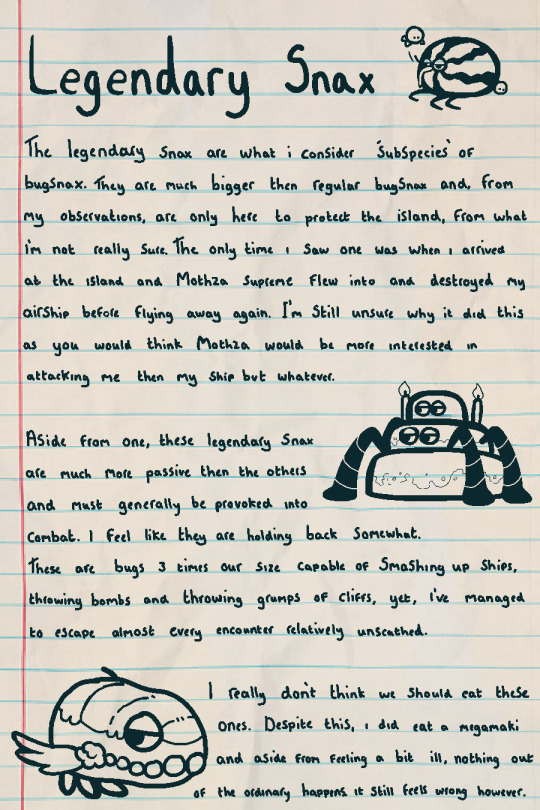 Legendary Snax
The legendary Snax are what i consider 'Subspecies' of
bugsnax. They are much bigger then regular bugsnax and, from
my observations, are only here to protect the island, From what
i'm not really sure. The only time i saw one was when i arrived
at the island and Mothza Supreme flew into and destroyed my
airship before flying away again. I'm still unsure why it did this
as you would think Mothza would be more interested in
attacking me then my ship but whatever.
Aside from one, these legendary Snax
are much more passive then the others
and must generally be provoked into
combat. I feel like they are holding back somewhat.
These are bugs 3 times our size capable of smashing up ships,
throwing bombs and throwing grumps of cliffs, yet, I've managed
to escape almost every encounter relatively unscathed.
I really don't think we should eat these
ones. Despite this, i did eat a megamaki
and aside from feeling a bit ill, nothing out
of the ordinary happens it still feels wrong however.